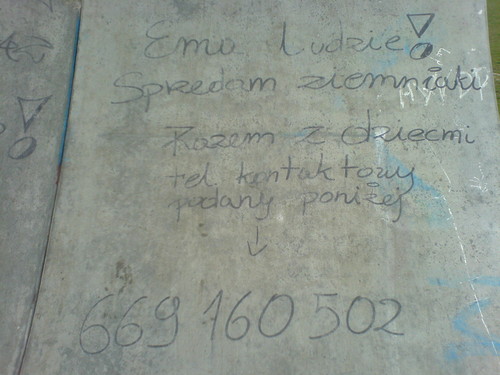 Emo Ludzie!
Sprzedam ziemniaki
Razem z dziećmi
tel kontaktowy
podany poniżej
↓
669 160 502